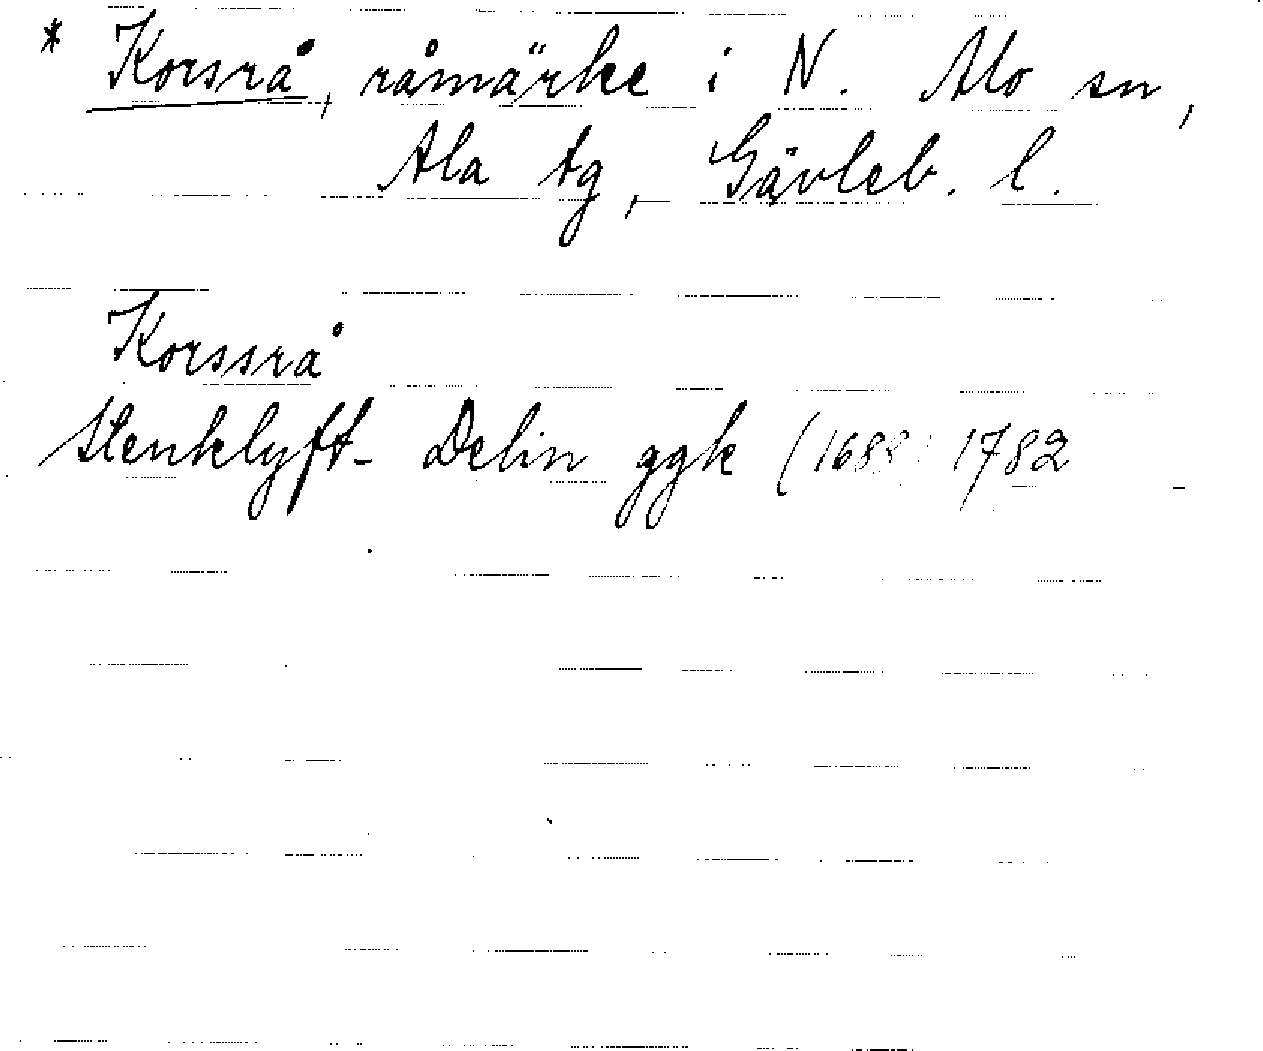 * Korsrå, råmärke i N. Alo sn,
Ala tg, Gävleb. l.
Korssrå
Stenklyft- Delin ggk (1688 1782